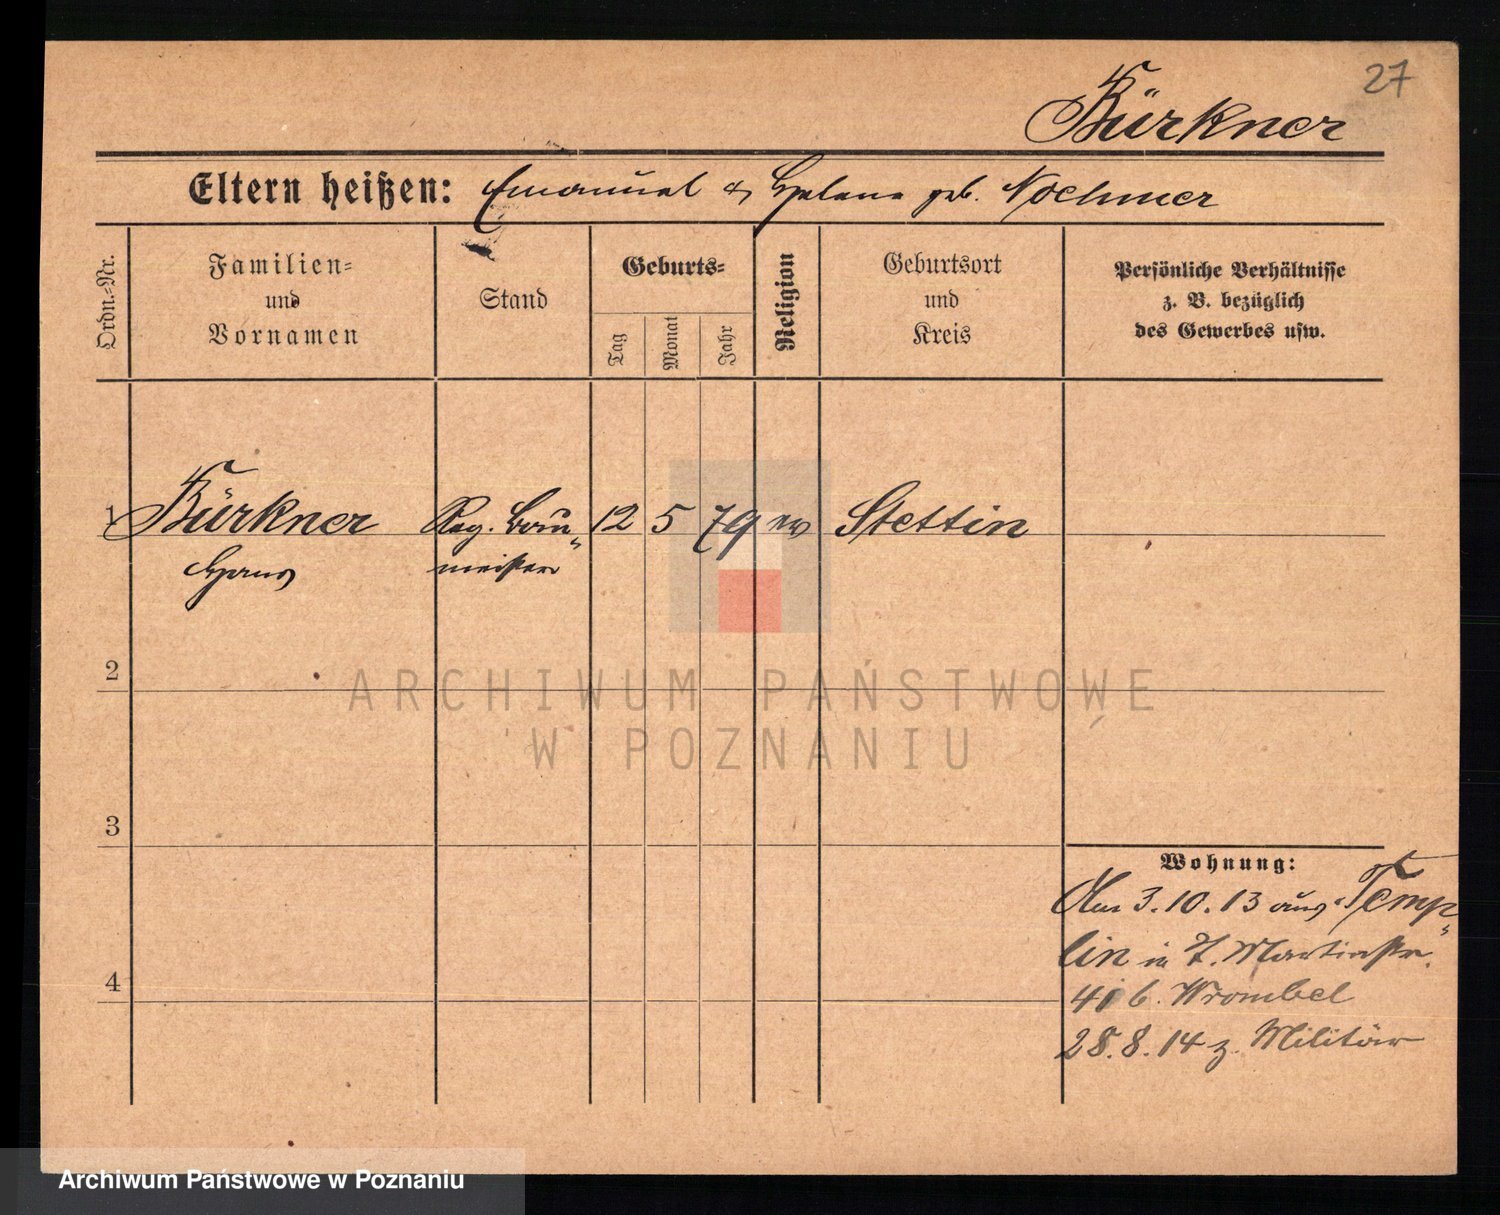 27
Bürkner
Eltern heißen: Emanuel & Helene geb. Nochmer
Ordn.-Nr.
Familien-
und
Vornamen
Stand
Geburts-
Tag
Monat
Jahr
Religion
Geburtsort
und
Kreis
Persönliche Verhältnisse
z. B. bezüglich
des Gewerbes usw.
1 Bürkner Reg. Bau- 12 5 79 ev Stettin
Hans meister
2
ARCHIWUM PAŃSTWOWE
W POZNANIU
3
Wohnung:
Am 3.10.13 aus Temp-
lin in Martinstr.
4
b. Wrombel
28.8.14 z. Militär
Archiwum Państwowe w Poznaniu